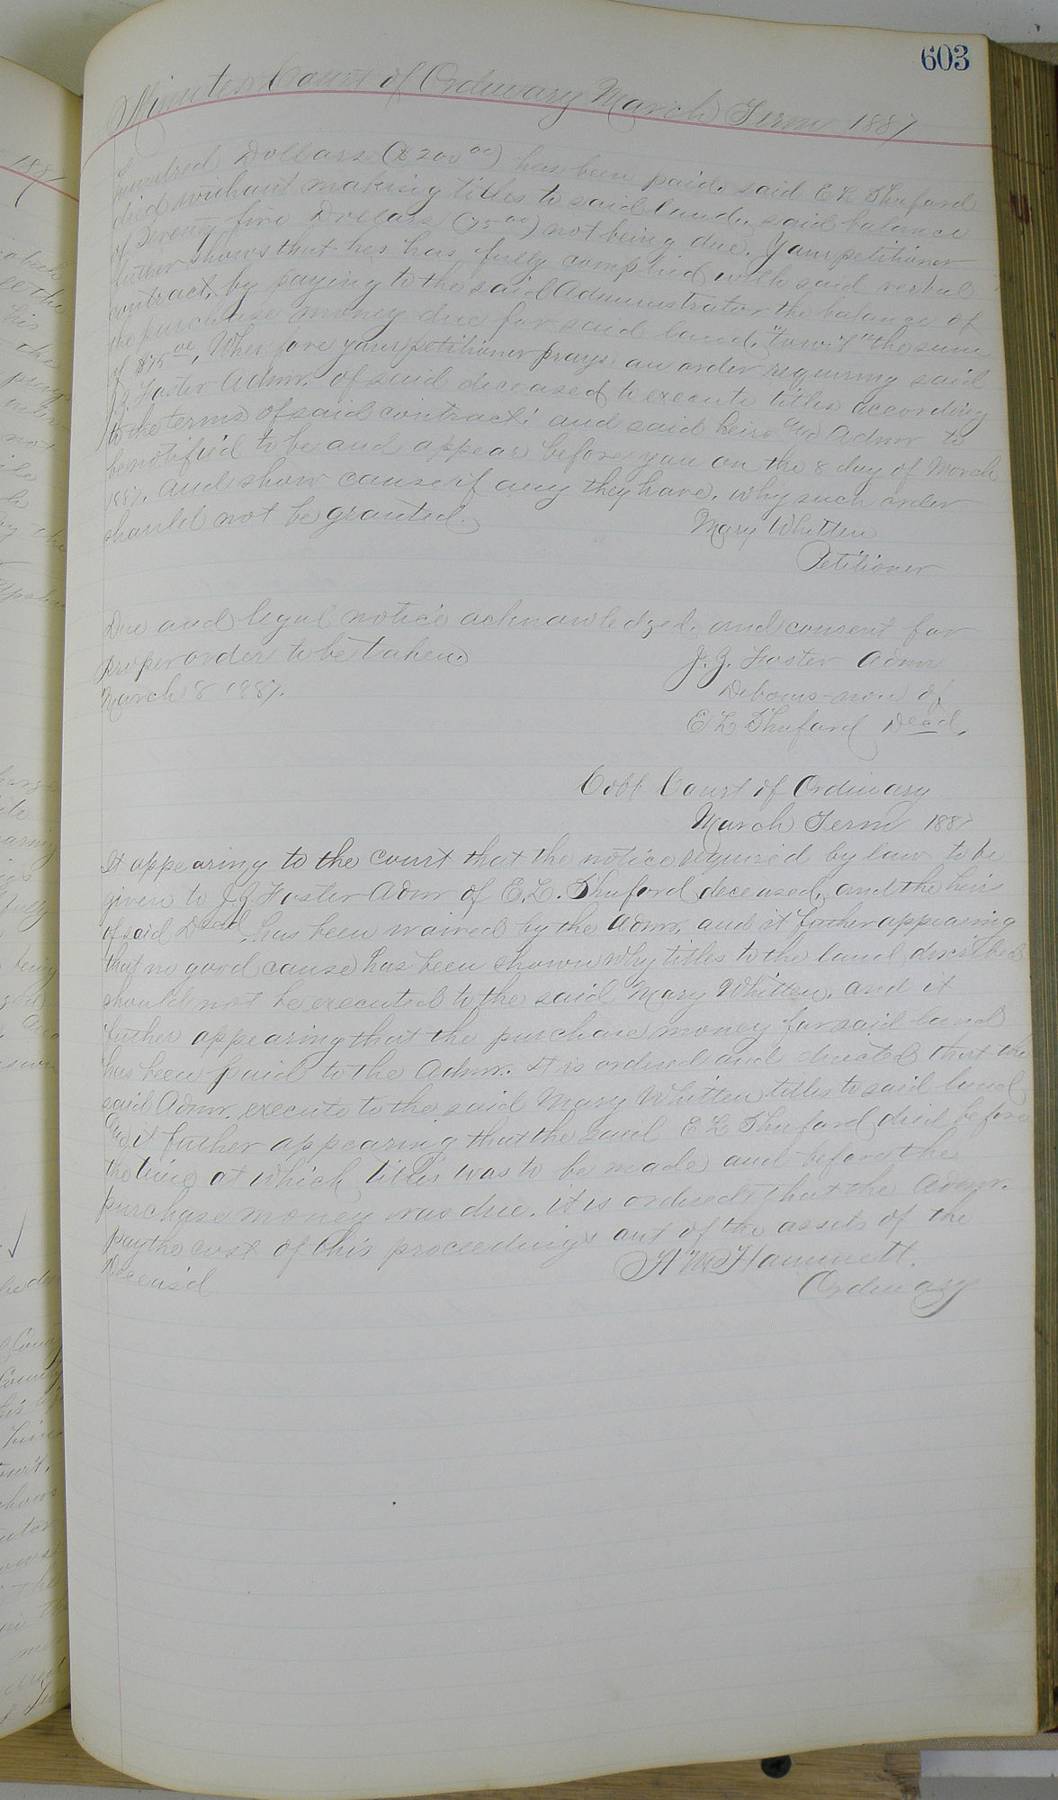 603
Minutes Court of Ordinary March Term 1887
hundred Dollars ($200 00) has been paid. said E L Shuford
died without making titles to said land, said balance
of Seventy five Dollars (75 00) not being due. Your petitioner
futher shows that hes has fully complied with said verbal
contract, by paying to the said Administrator the balance of
the purchase money due for said land, "towit" the sum
of $75 00, Wherefore your petitioner prays an order requiring said
J. J. Foster Admr. of said deceased to execute titles according
to the terms of said contract: and said heirs and Admr to
be notified to be and appear before you on the 8 day of March
1887. and show cause if any they have, why such order
should not be granted.
Mary Whitten
Petitioner
Due and legal notice acknowledged. and consent for
proper order to be taken.
J. J. Foster Admr
March 8 1887.
Debonis-non of
E L Shuford Decd.
Cobb Court of Ordinary
March Term 1887
It appearing to the court that the notice required by law to be
given to J J Foster Admr of E. L. Shuford deceased, and the heirs
of said Decd. has been waived by the Admr. and it futher appearing
that no good cause has been shown why titles to the land described
should not be executed to the said Mary Whitten. and it
futher appearing that the purchase money for said land
has been paid to the Admr. it is ordered and directed that the
said Admr. execute to the said Mary Whitten titles to said land
And it futher appearing that the said E L Shuford died before
the time at which titles was to be made and before the
purchase money was due. it is ordered that the Admr.
pay the cost of this proceedings out of the assets of the
Deceas'd
H M Hammett.
Ordinary